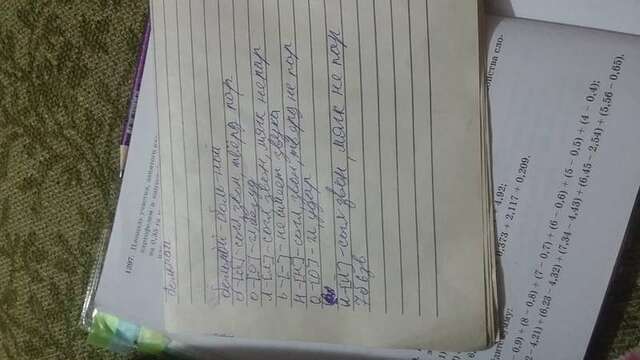 1297. Площадь участка, занятого
картофелем и капус
на 0,33 га
больной
больной - боль-ной
б-[б]-согл, звон, тверд пар
о-[о]-гл безуд
л-[л]-согл звон, мягк непар
ь-[-]-не имеет звука
н-[н]-согл, звон, тверд не пар
о-[о]-гл удар
й-[й]-согл звон, мягк не пар
7б 6зв
4,92;
йства сло-
0,373 + 2,117 + 0,209.
дите сумму:
- 0,9) + (8 - 0,8) + (7 - 0,7) + (6 - 0,6) + (5 - 0,5) + (4 - 0,4);
2 - 4,21) + (6,23 - 4,32) + (7,34 - 4,43) + (6,45 - 2,54) + (5,56 - 0,65).